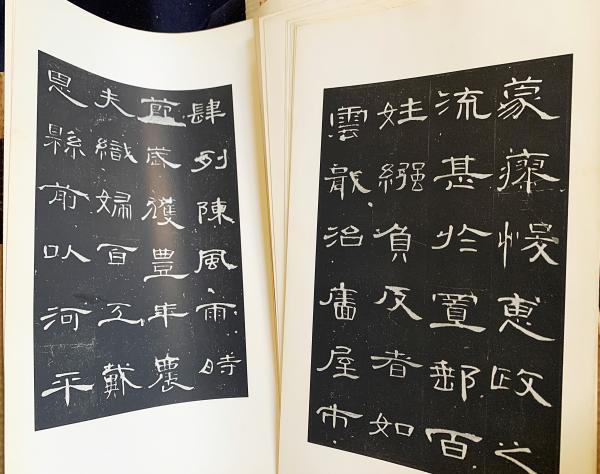 蒙瘳悛惠政之
流甚扵置郵百
姓繈負反者如
雲戢治廧屋市
肆列陳風雨時
節歲獲豐年農
夫織婦百工戴
恩縣前以河平